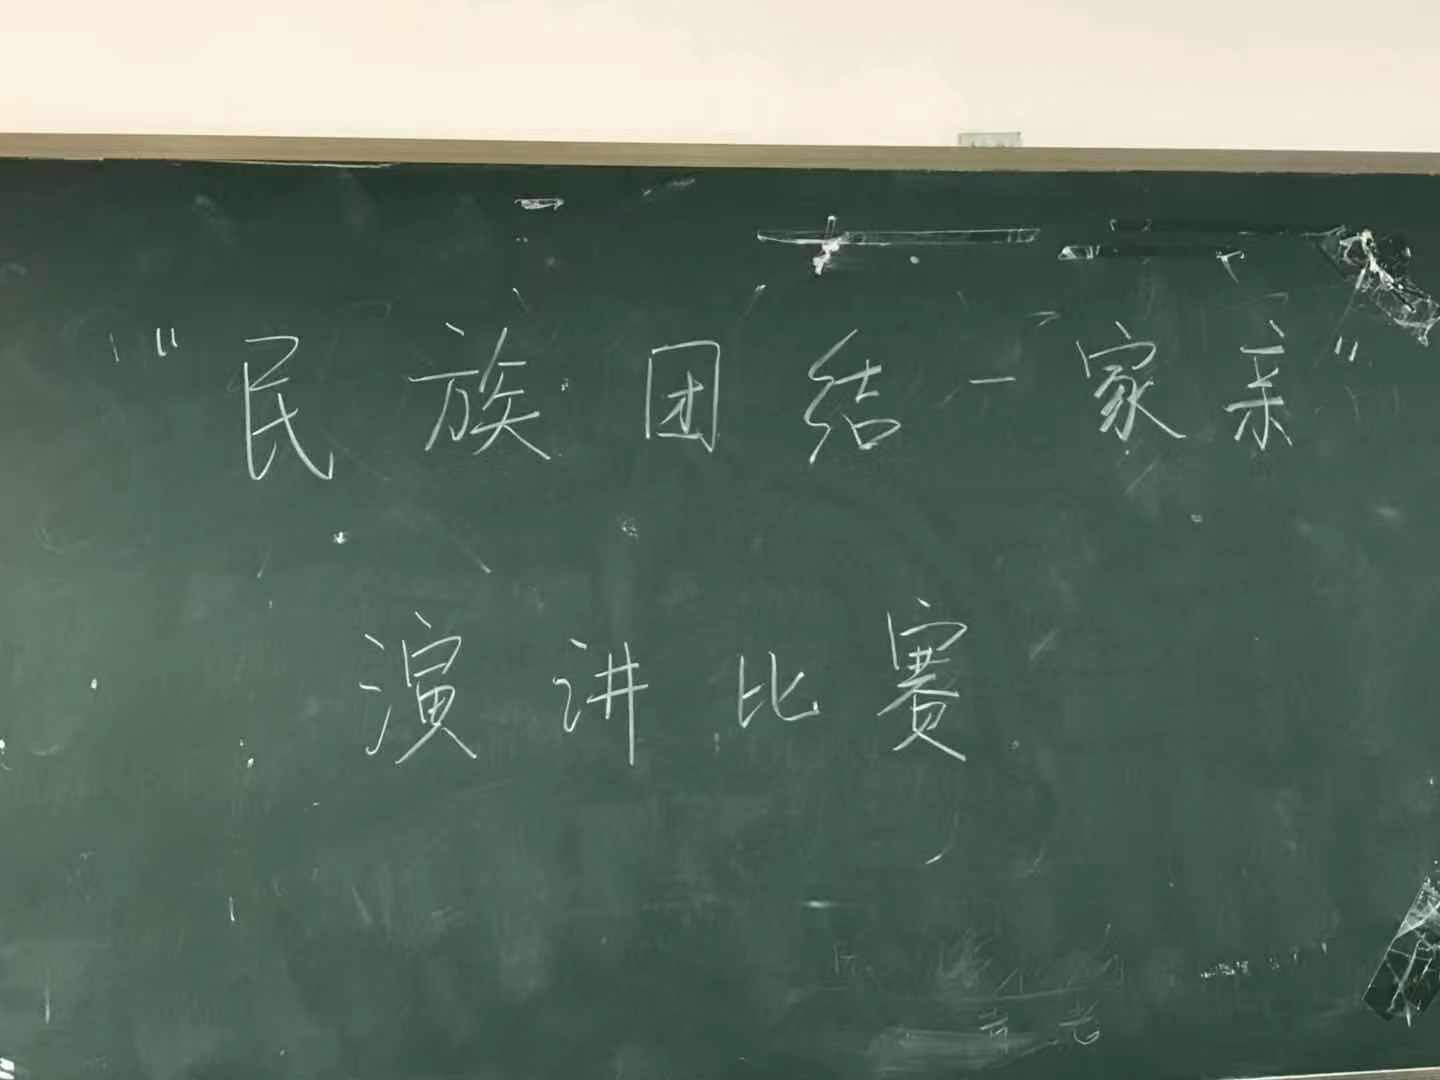 "民族团结一家亲"
演讲比赛